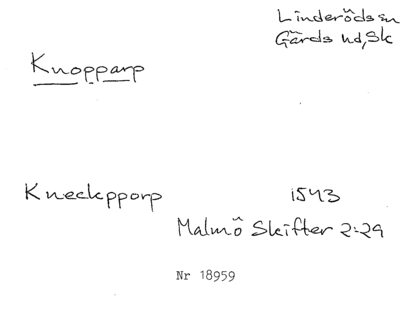 Linderöds sn
Gärds hd, Sk
Knopparp
Kneckpporp 1543
Malmö Skifter 2:29
Nr 18959